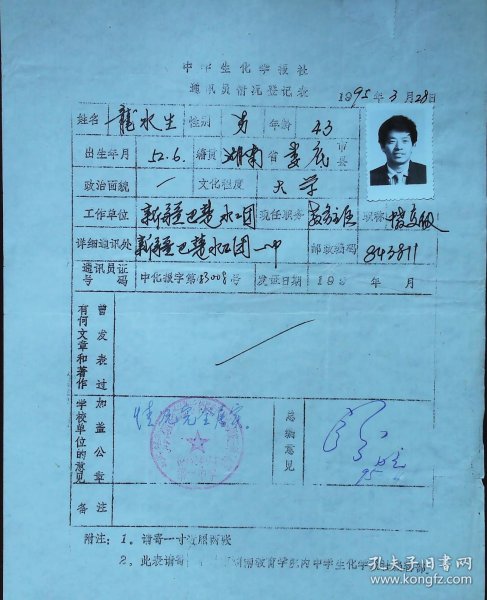 中中生化学报社
通讯员情况登记表 1995年3月28日
姓名 龍水生 性别 男 年龄 43
出生年月 52.6. 籍贯 湖南省娄底市县
政治面貌 一 文化程度 大学
工作单位 新疆巴楚水工团 现任职务 教务主任 职称
详细通讯处 新疆巴楚水工团一中 邮政编码 843811
通讯员证号码 中化报字第83008号 发证日期 199 年 月
曾发表过有何文章和著作
加盖公章学校单位的意见 情况完全属实. 总编意见
备注
附注：1、请寄一寸证照两张
2、此表请寄 教育学院内中学生化学报社
孔夫子旧书网
www.kongfz.com